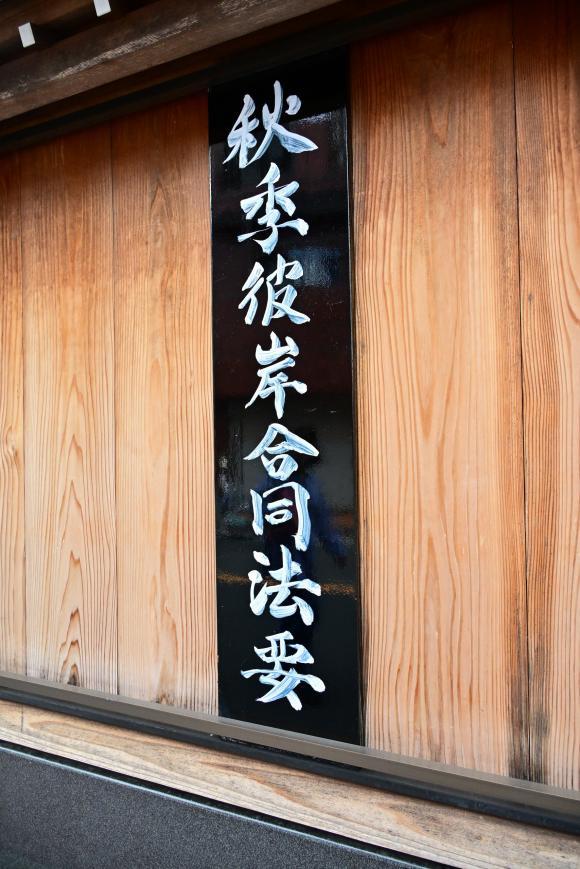 秋季彼岸合同法要